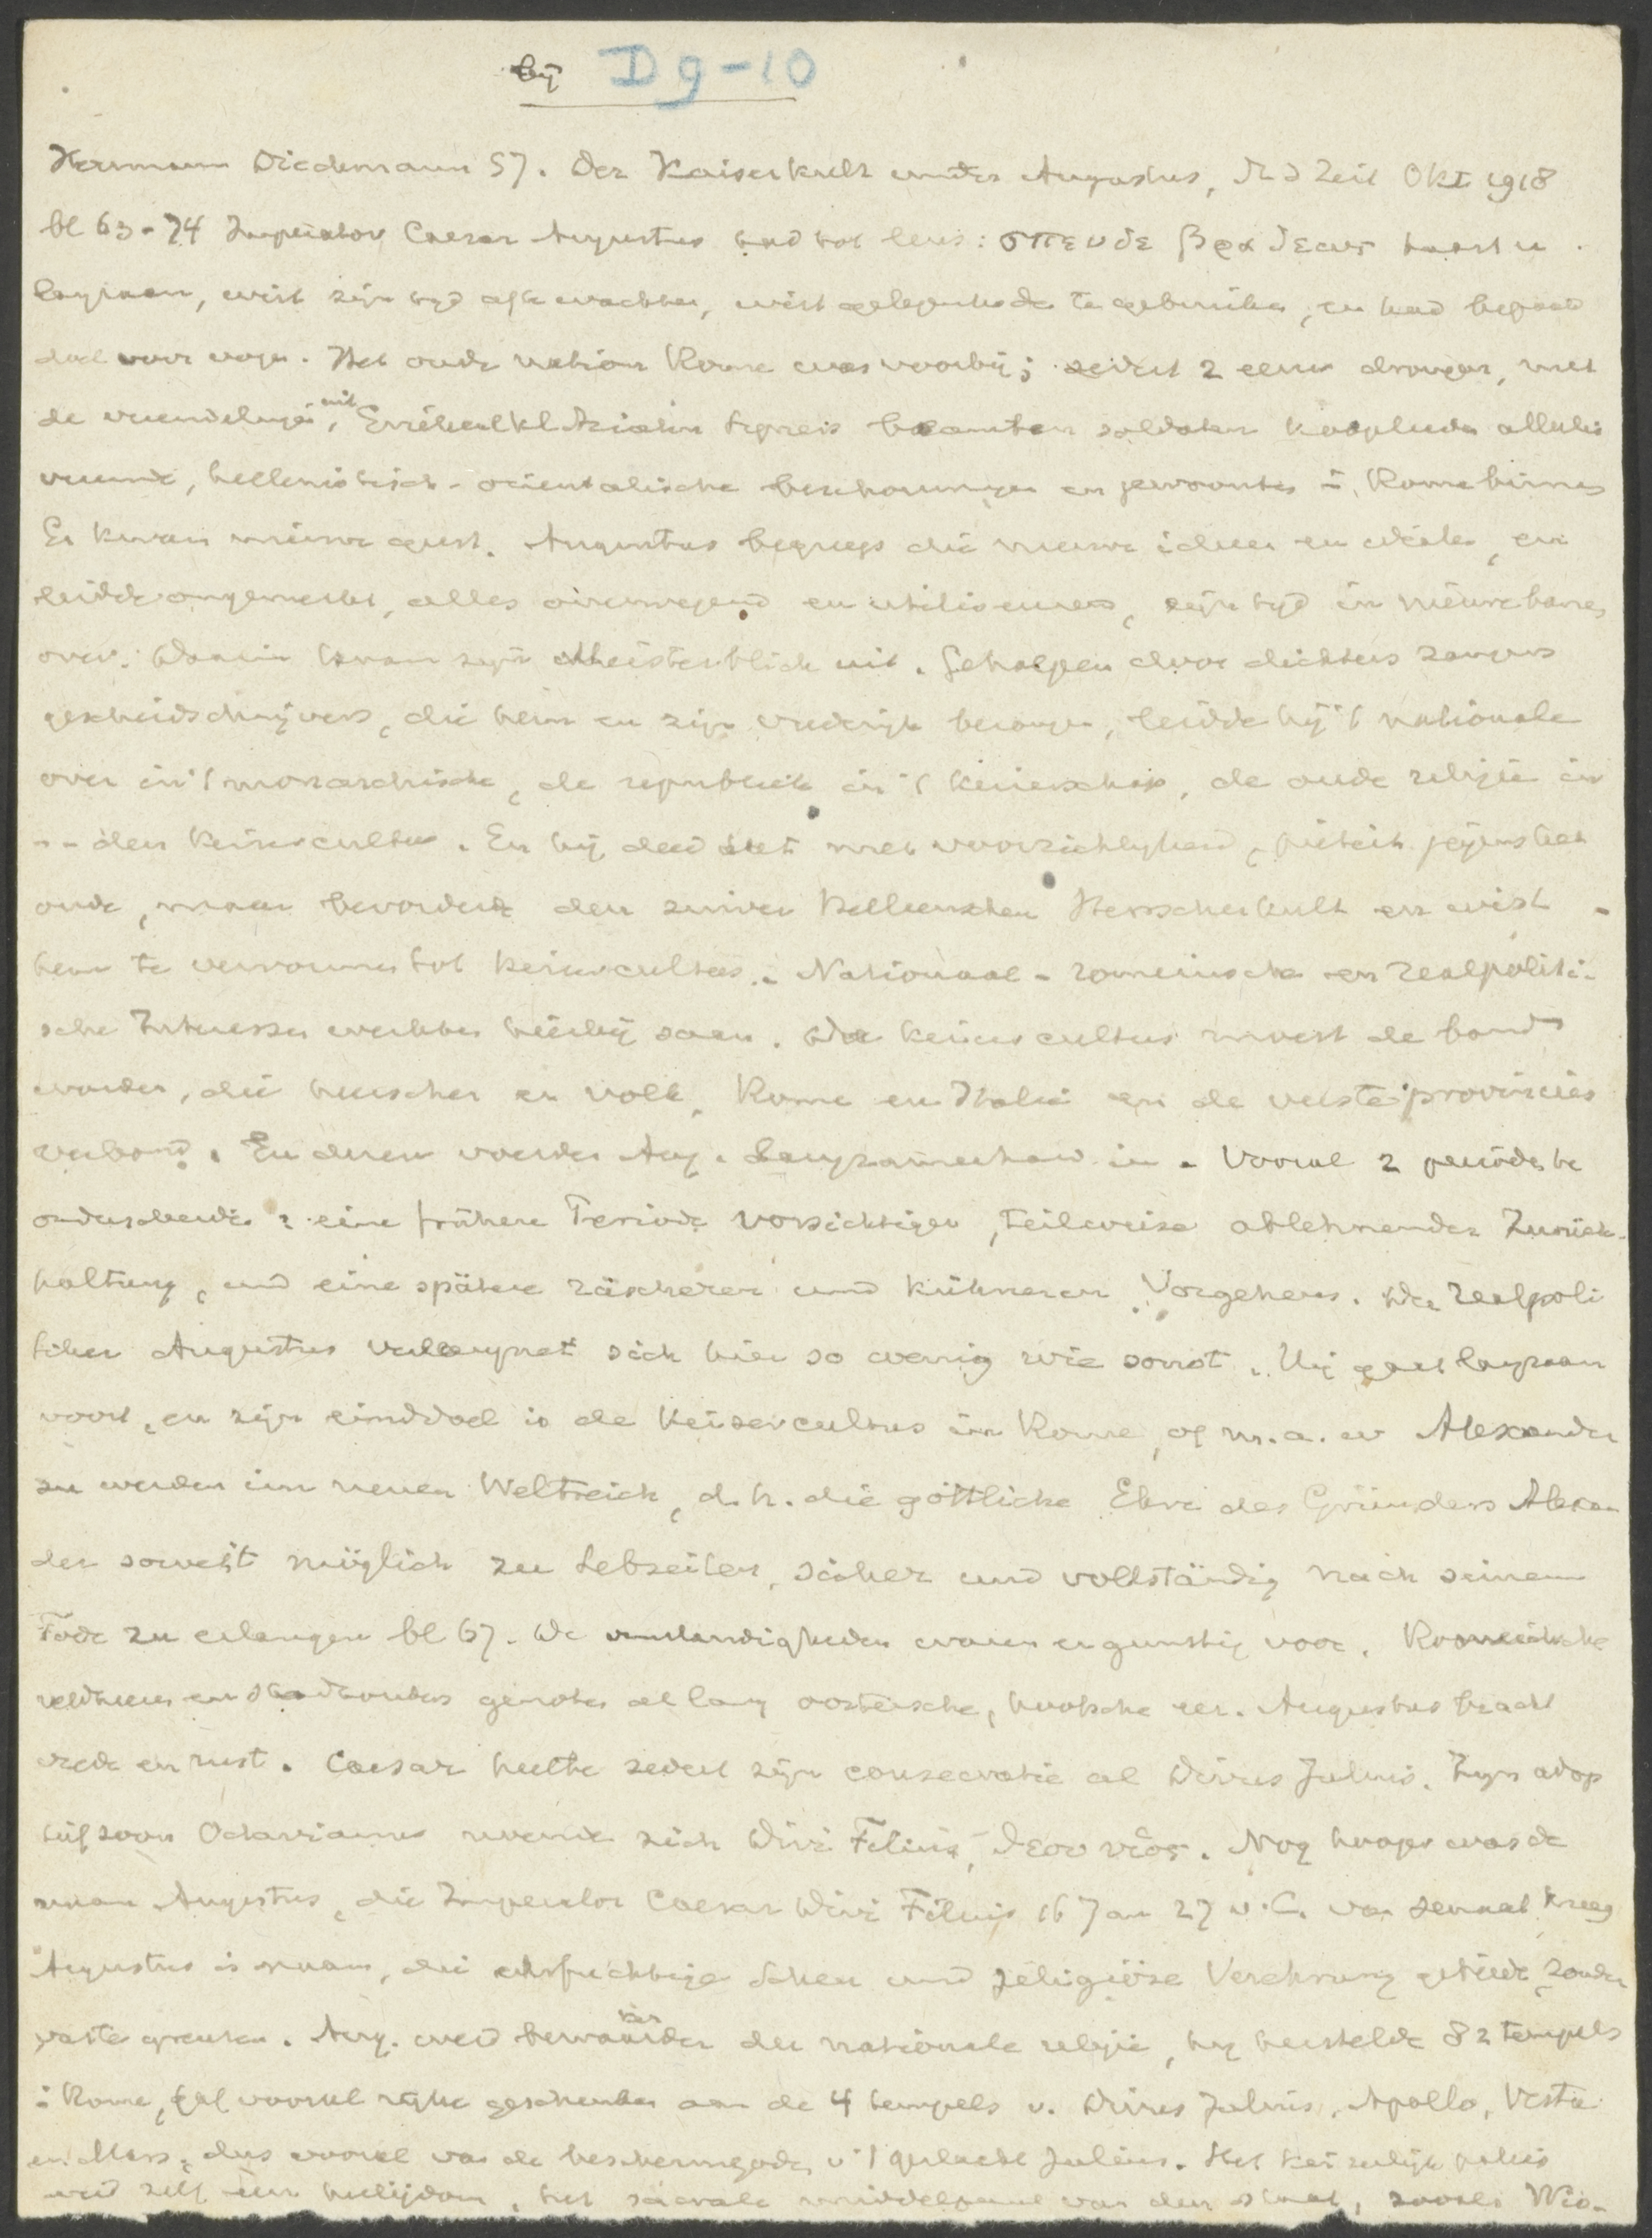 bij D 9-10
Hermann Diedemann SJ. Der Kaiserkult unter Augustus, St d Zeit Okt 1918
bl 63-74 Imperator Caesar Augustus had tot leus: σπευδε βραδεως haast u
langzaam, wist zijn tijd af te wachten, wist gelegenheden te gebruiken, en had bepaald
doel voor oogen. Het oude nation Rome was voorbij; sedert 2 eeuw drongen, met
de vreemdelingen, uit Klazien Syrie beambten soldaten kooplieden allerlei
vreemde, hellenistisch-orientalische beschouwingen en gewoontes i. Rome binnen
Er kwam nieuwe geest. Augustus begreep die nieuwe ideeen en idealen, en
leidde ongemerkt, alles overwegend en utiliseerend, zijn tijd in nieuwe banen
over. Daarin kwam zijn Meisterblick uit. Geholpen door dichters zangers
geschiedschrijvers, die hem en zijn vrederijk bezongen, leidde hij 't nationale
over in 't monarchische, de republiek in 't keizerschap, de oude religie in
-- den keizercultus. En hij deed het met voorzichtigheid, pieteit jegens het
oude, maar bevorderde den zuiver Helleenschen Herrscherkult en wist
hem te vervormen tot keizercultus. Nationaal-romeinsche en realpoliti-
sche Interessen werkten hierbij saam. De keizercultus moest de band
worden, die heerscher en volk, Rome en Italie en de verste provincies
verbond. En dezen voerde Aug. langzamerhand in. Vooral 2 perioden te
onderscheiden: eine frühere Periode vorsichtiger, teilweise ablehnender Zurück-
haltung, und eine spätere rascheren und kühneren Vorgehens. Der Realpoli
tiker Augustus verleugnet sich hier so wenig wie sonst. Hij gaat langzaam
voort, en zijn einddoel is de keizercultus in Rome, of m.a.w Alexander
zu werden im neuen Weltreich, d.h. die göttliche Ehre des Gründers Alexan
der soweit möglich zu Lebzeiten, sicher und vollständig nach seinem
Tode zu erlangen bl 67. De omstandigheden waren er gunstig voor. Romeinsche
veldheeren en stadhouders genoten al lang oostersche, hoofsche eer. Augustus bracht
vrede en rust. Caesar heette sedert zijn consecratie al Divus Julius. Zijn adop
tiefzoon Octavianus noemde zich Divi Filius, θεου υιος. Nog hooger was de
naam Augustus, die Imperator Caesar Divi Filius 16 Jan 27 v.C. van senaat kreeg
Augustus is naam, die ehrfürchtige Scheu und religiöse Verehrung gebiedt, zonder
vaste grenzen. Aug. werd bewaarder der nationale religie, hij herstelde 82 tempels
i Rome, gaf vooral rijke geschenken aan de 4 tempels v. Divus Julius, Apollo, Vesta
en Mars, dus vooral van de beschermgoden v 't geslacht Julius. Het keizerlijk paleis
werd zelf een heiligdom, het sacrale middelpunt van den staat, zooals Wis-